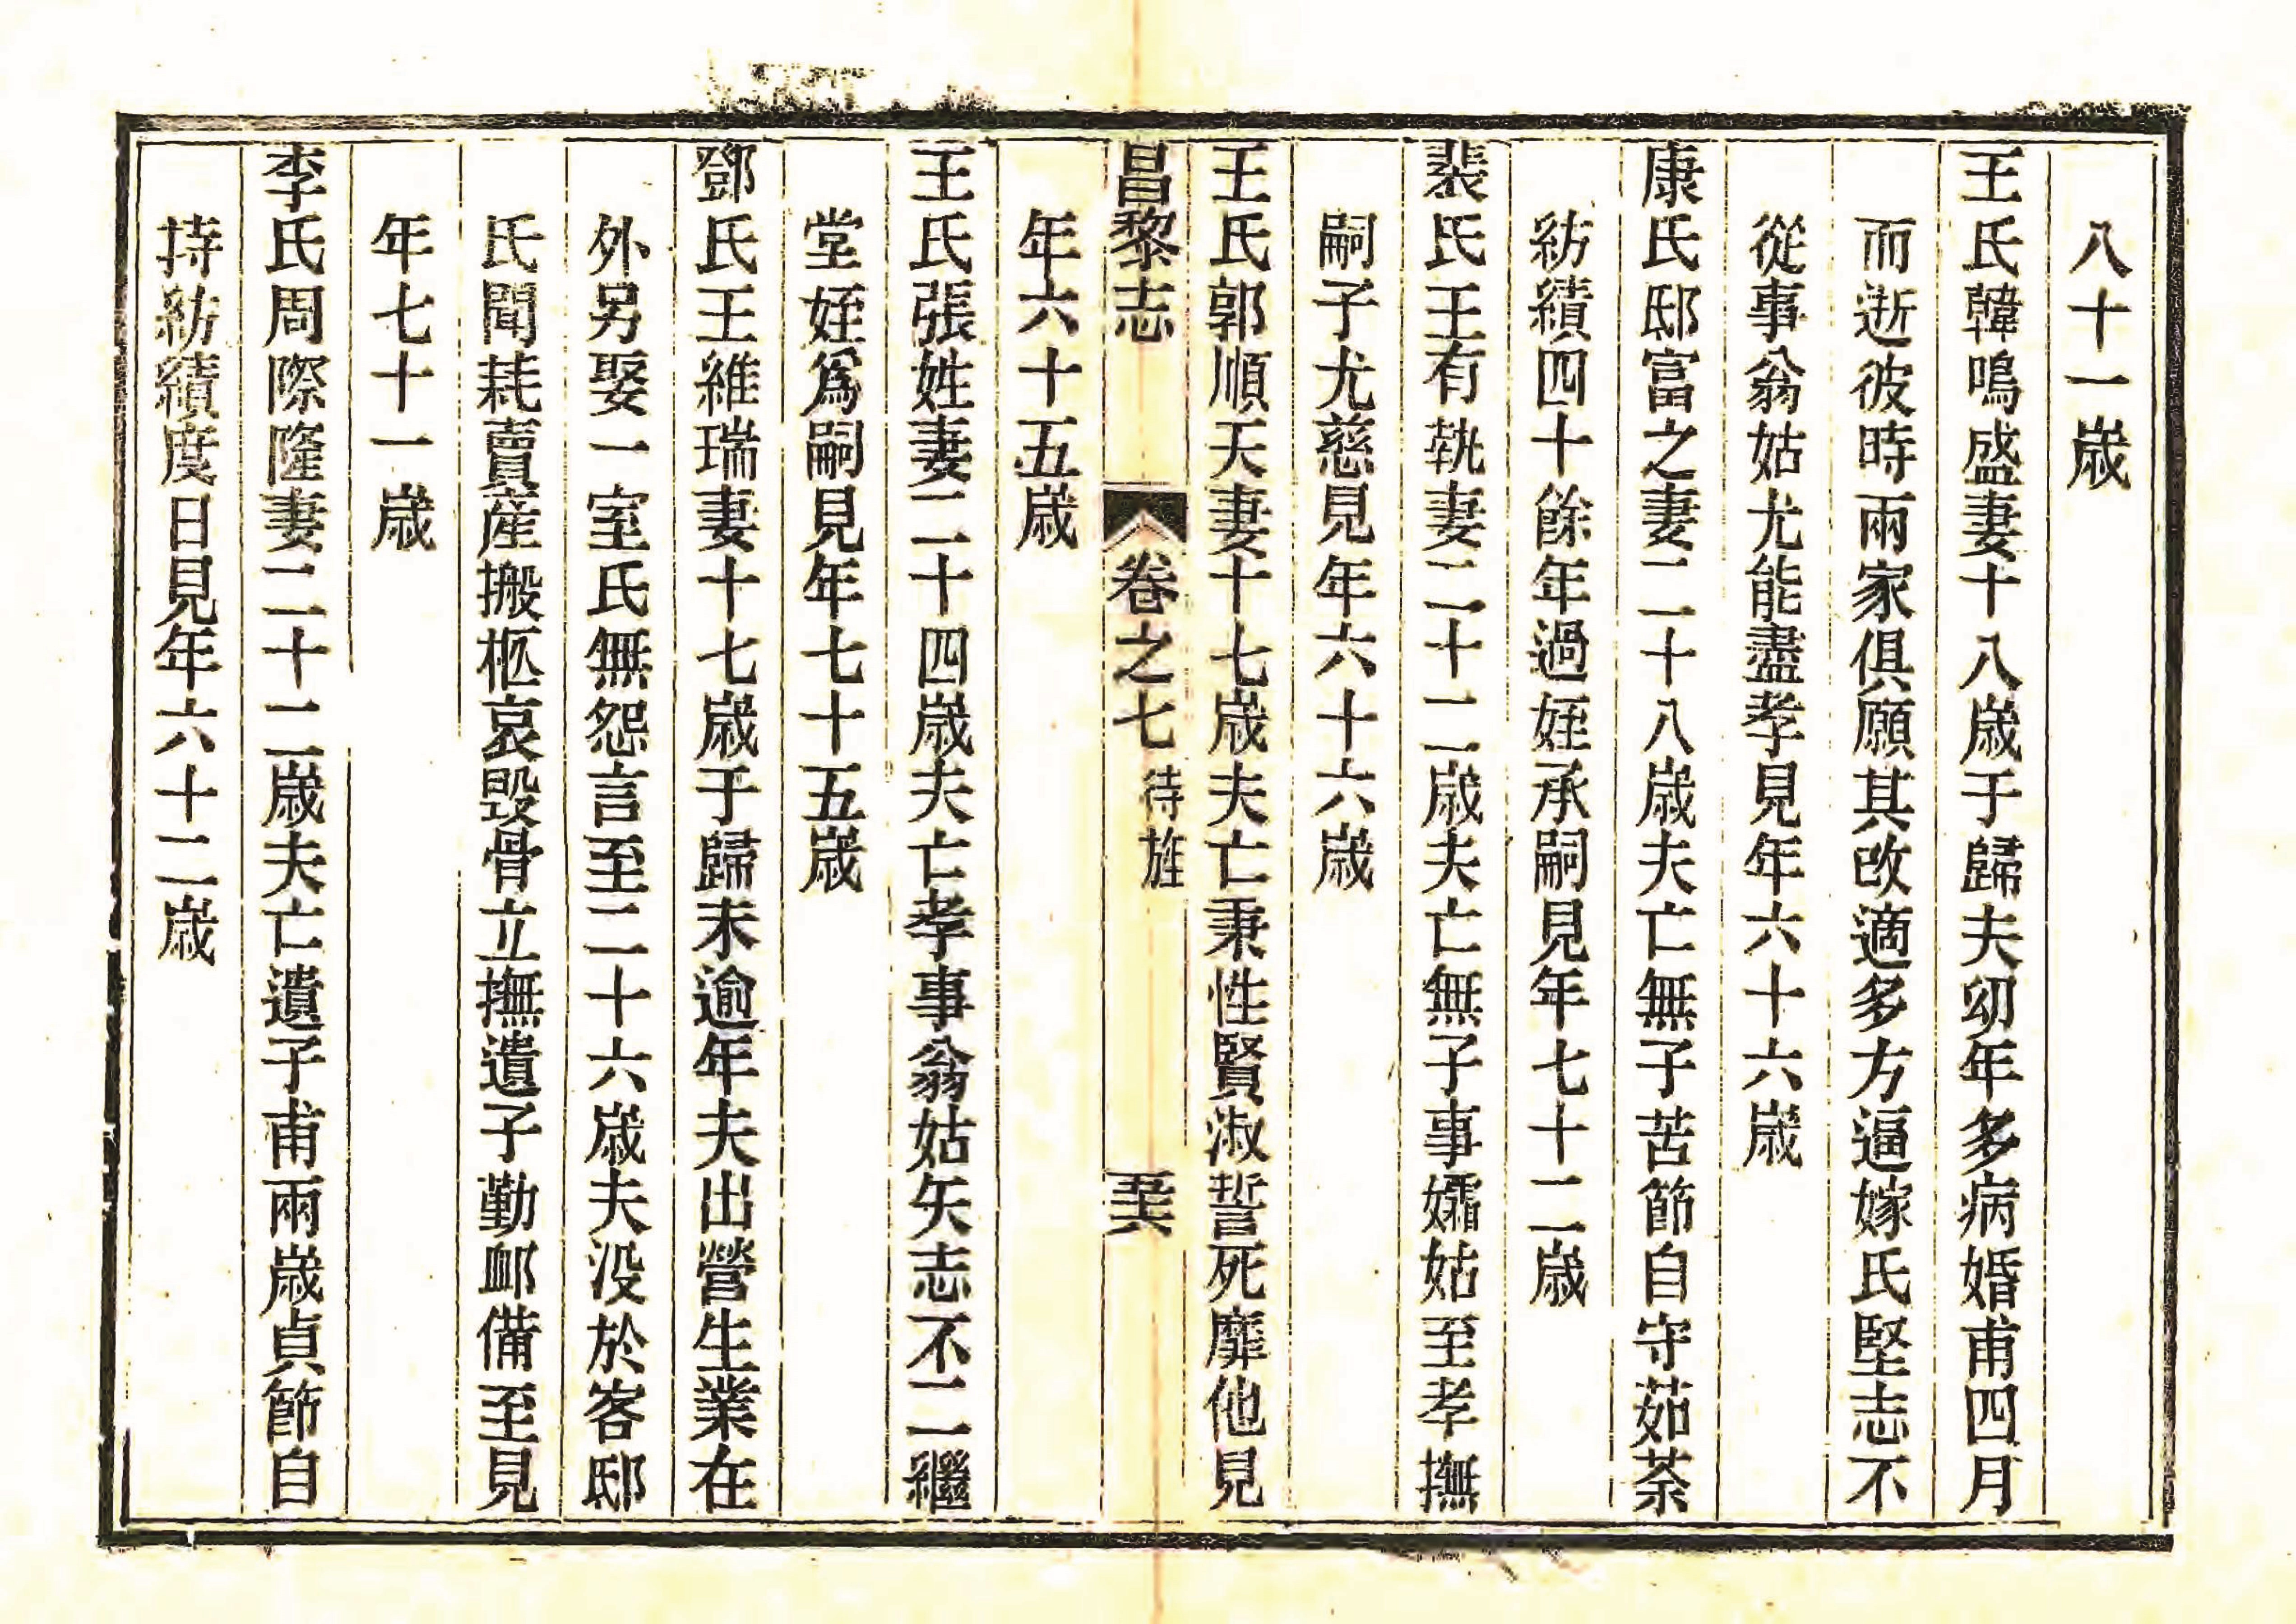 八十一歲
王氏韓鳴盛妻十八歲于歸夫幼年多病婚甫四月
而逝彼時兩家俱願其改適多方逼嫁氏堅志不
從事翁姑尤能盡孝見年六十六歲
康氏邸富之妻二十八歲夫亡無子苦節自守茹荼
紡績四十餘年過姪承嗣見年七十二歲
裴氏王有執妻二十二歲夫亡無子事孀姑至孝撫
嗣子尤慈見年六十六歲
王氏郭順天妻十七歲夫亡秉性賢淑誓死靡他見
昌黎志 卷之七 待旌 五十六
年六十五歲
王氏張姓妻二十四歲夫亡孝事翁姑矢志不二繼
堂姪爲嗣見年七十五歲
鄧氏王維瑞妻十七歲于歸未逾年夫出營生業在
外另娶一室氏無怨言至二十六歲夫没於客邸
氏聞耗賣産搬柩哀毀骨立撫遺子勤䘏備至見
年七十一歲
李氏周際隆妻二十二歲夫亡遺子甫兩歲貞節自
持紡績度日見年六十二歲